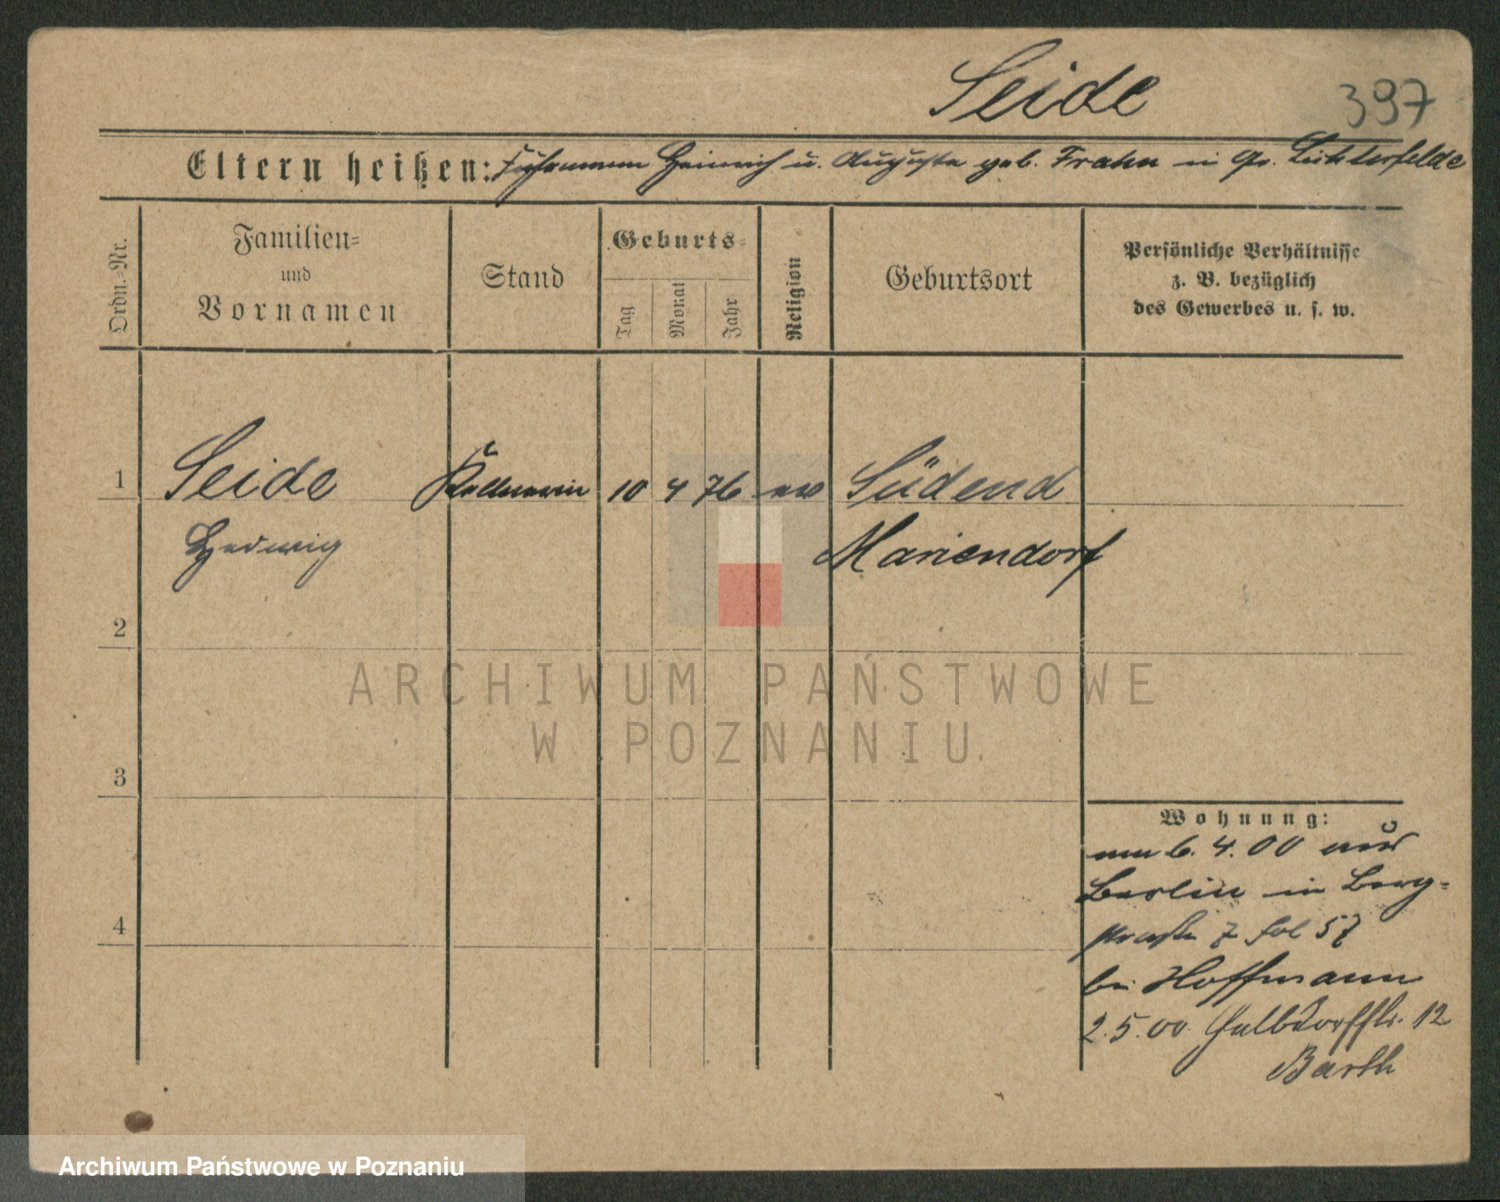 Seide
397
Eltern heißen: Fuhrmann Heinrich u. Auguste geb. Frahn in Gr. Lichterfelde
Ordn.-Nr.
Familien-
und
Vornamen
Stand
Geburts-
Tag
Monat
Jahr
Religion
Geburtsort
Persönliche Verhältnisse
z. B. bezüglich
des Gewerbes u. s. w.
1 Seide Kellnerin 10 4 76 ev Südend
Hedwig Mariendorf
2
ARCHIWUM PAŃSTWOWE
W POZNANIU
3
4
Wohnung:
6. 4. 00 aus
Berlin in Berg-
straße 7 fol 57
bei Hoffmann
2. 5. 00 12
Barth
Archiwum Państwowe w Poznaniu